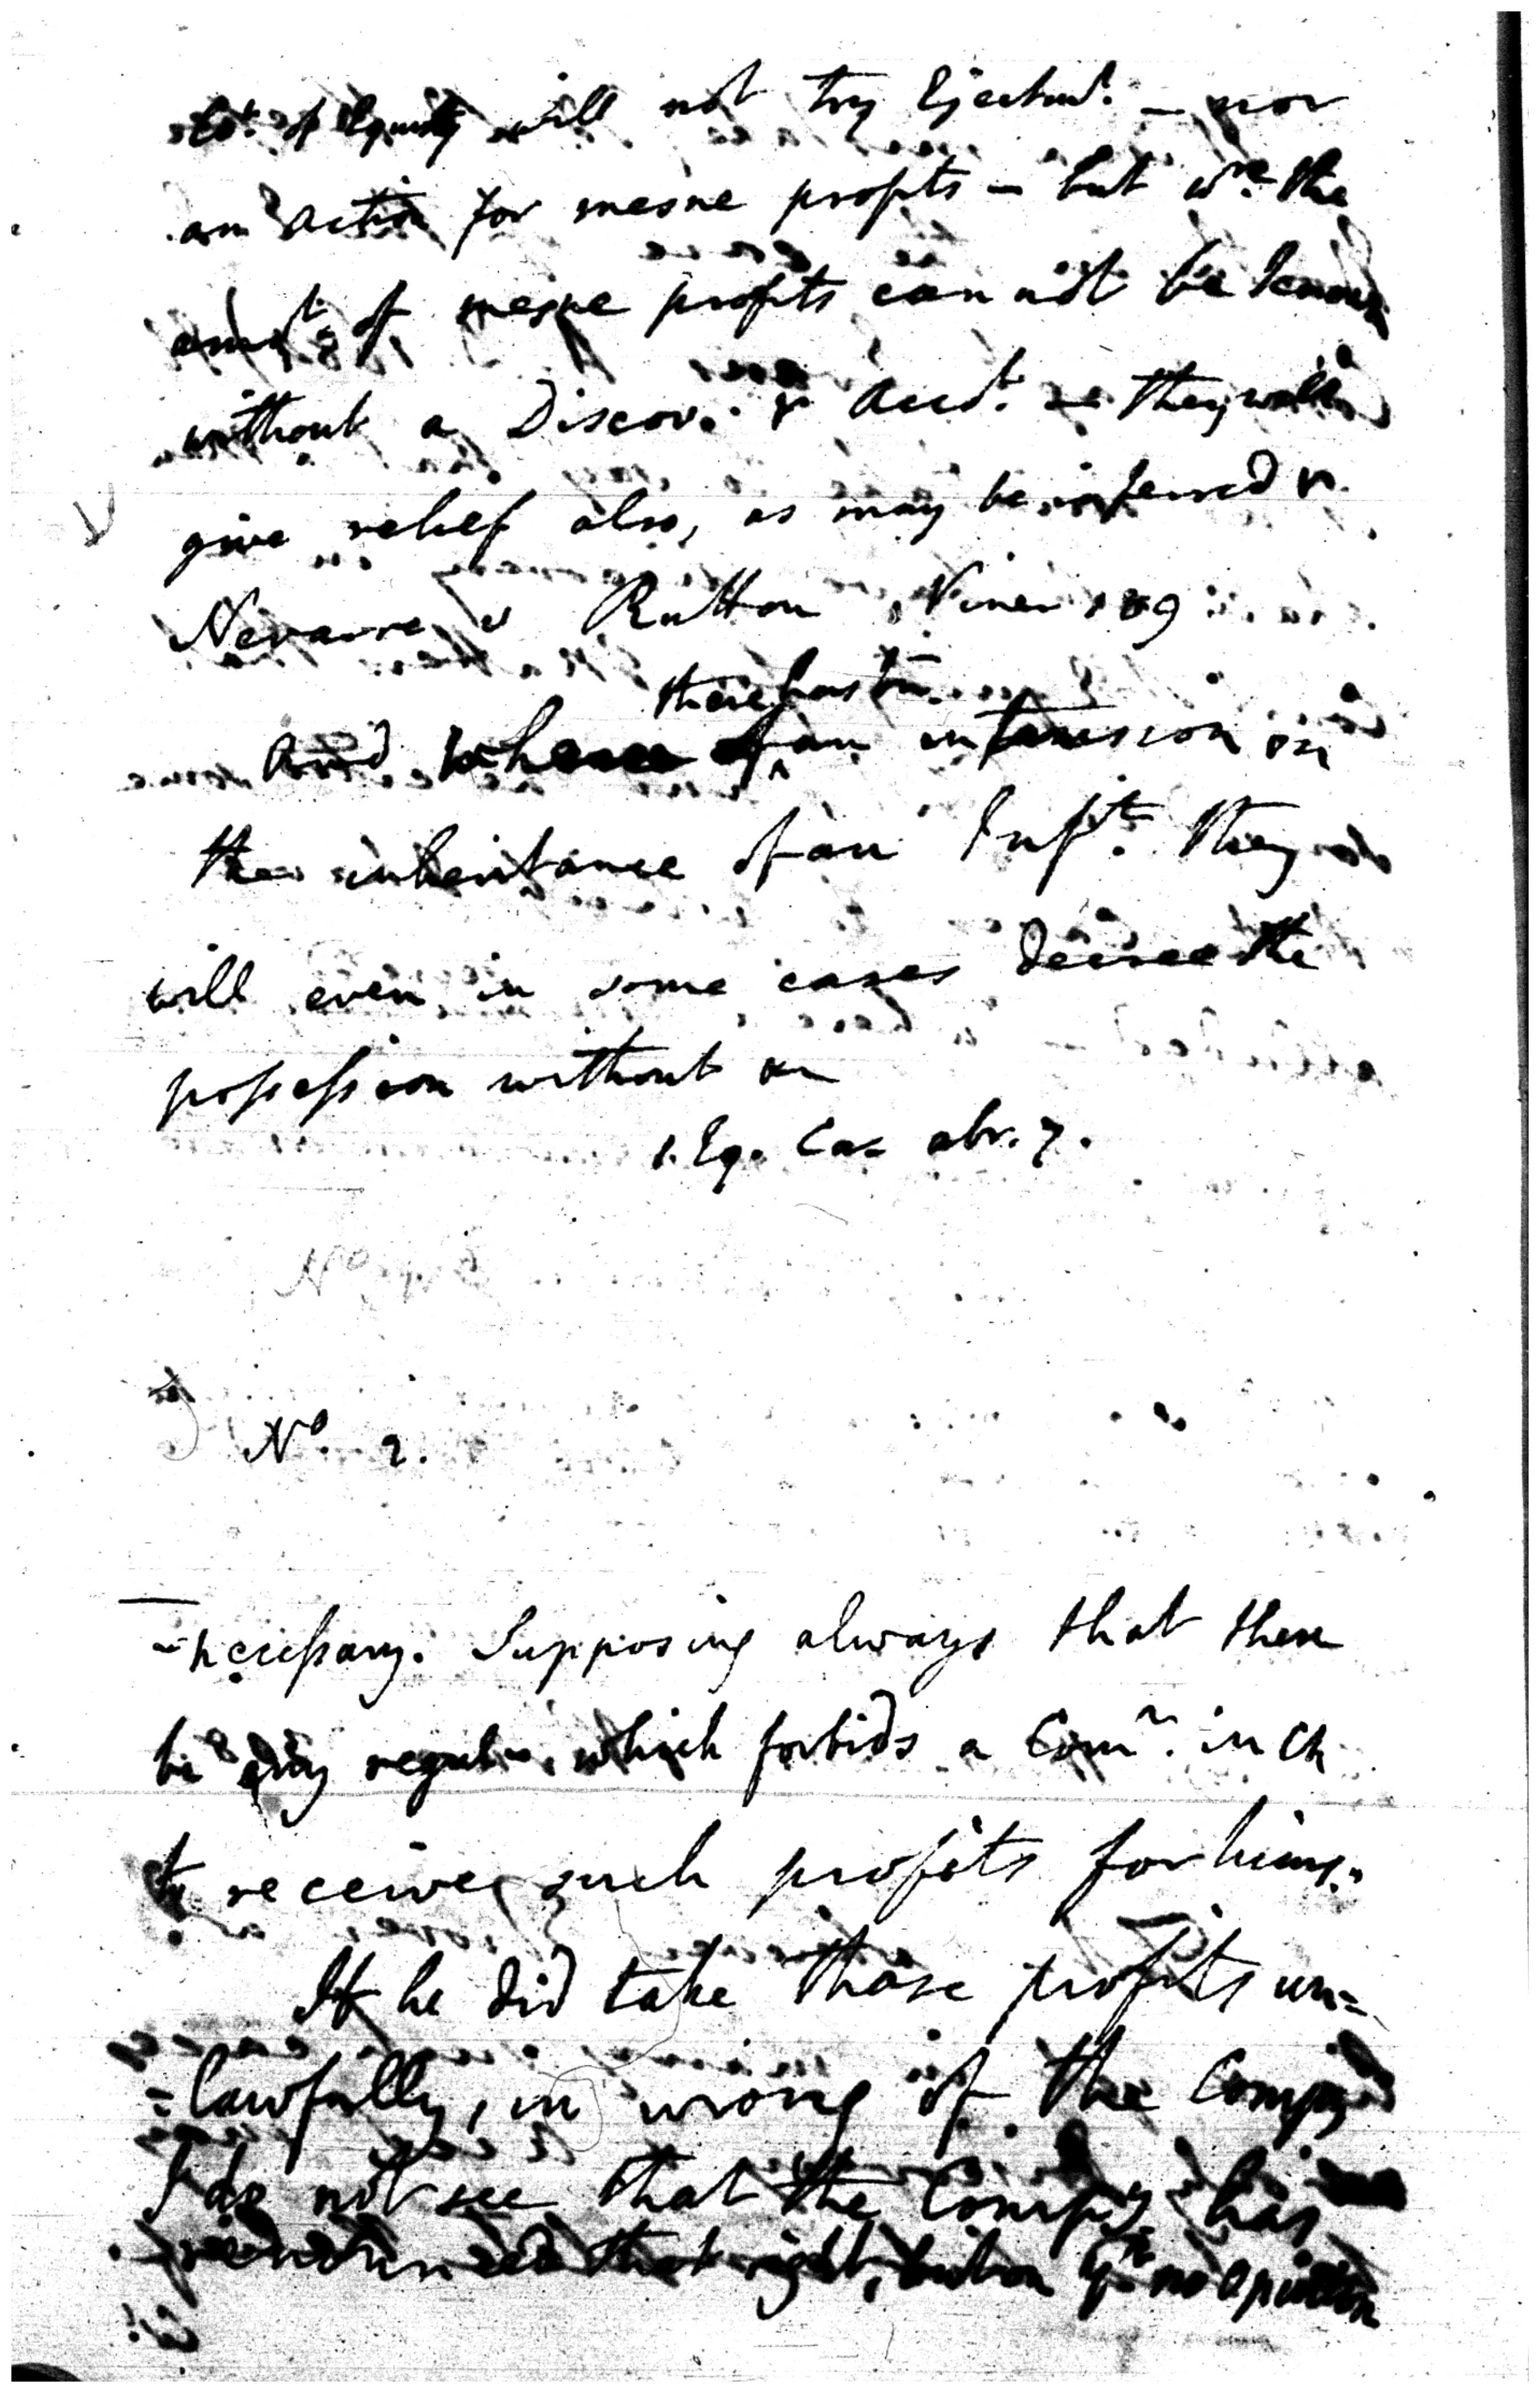 Cot. of Equity will not try Ejectmt. — nor
an action for mesne profits — but wre. the
amot. of mesne profits can not be known
without a Discov. & Acct. — they will
give relief also, as may be inferred
Nevarre v Rutton Viner 189
there has bn.
And where an intrusion on
the inheritance of an Inft. they
will even in some cases decree the
possession without an
1. Eq. Cas abr. 7.
No. 2.
-necessary. Supposing always that there
be any regulan. which forbids a Comr. in Ch
to receive such profits for hims.
If he did take those profits un=
=lawfully, in wrong of the Compy
I do not see that the Compy has
that right, no opinion